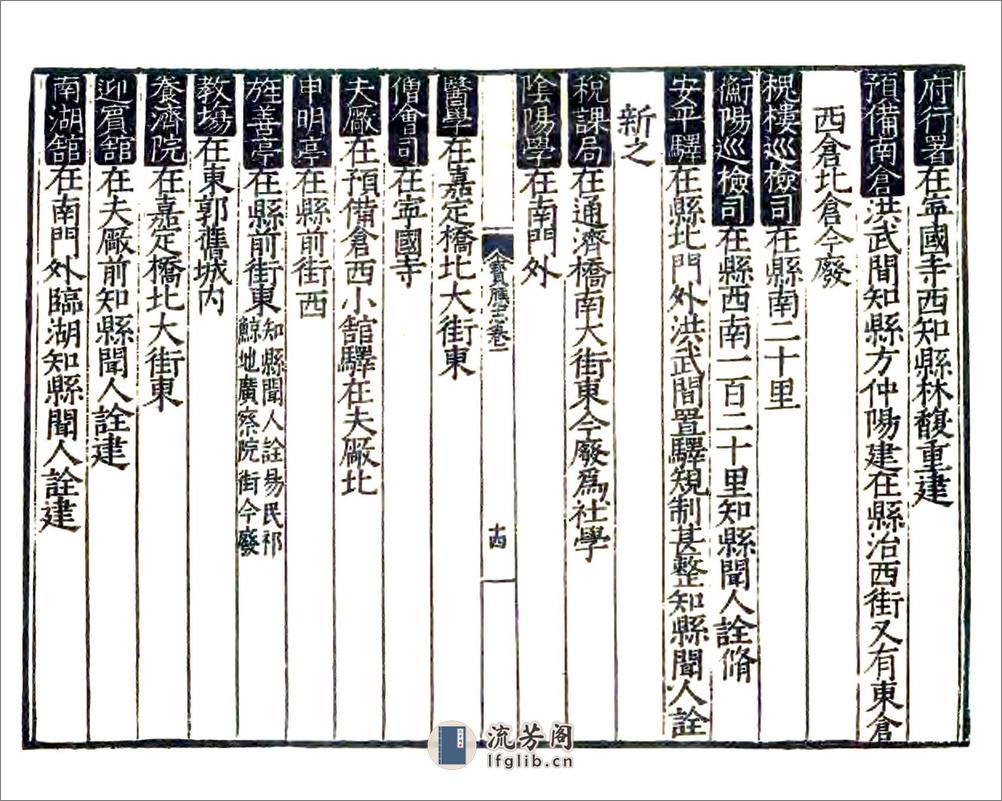 府行署在寧國寺西知縣林馥重建
預備南倉洪武間知縣方仲陽建在縣治西街又有東倉
西倉北倉今廢
槐樓巡檢司在縣南二十里
衡陽巡檢司在縣西南一百二十里知縣聞人詮脩
安平驛在縣北門外洪武間置驛規制甚整知縣聞人詮
新之
稅課局在通濟橋南大街東今廢爲社學
陰陽學在南門外
寶應志卷一
十四
醫學在嘉定橋北大街東
僧會司在寧國寺
夫厰在預備倉西小舘驛在夫厰北
申明亭在縣前街西
旌善亭在縣前街東知縣聞人詮易民祁鯨地廣察院街今廢
教塲在東郭舊城内
養濟院在嘉定橋北大街東
迎賔舘在夫厰前知縣聞人詮建
南湖舘在南門外臨湖知縣聞人詮建
流芳阁
lfglib.cn